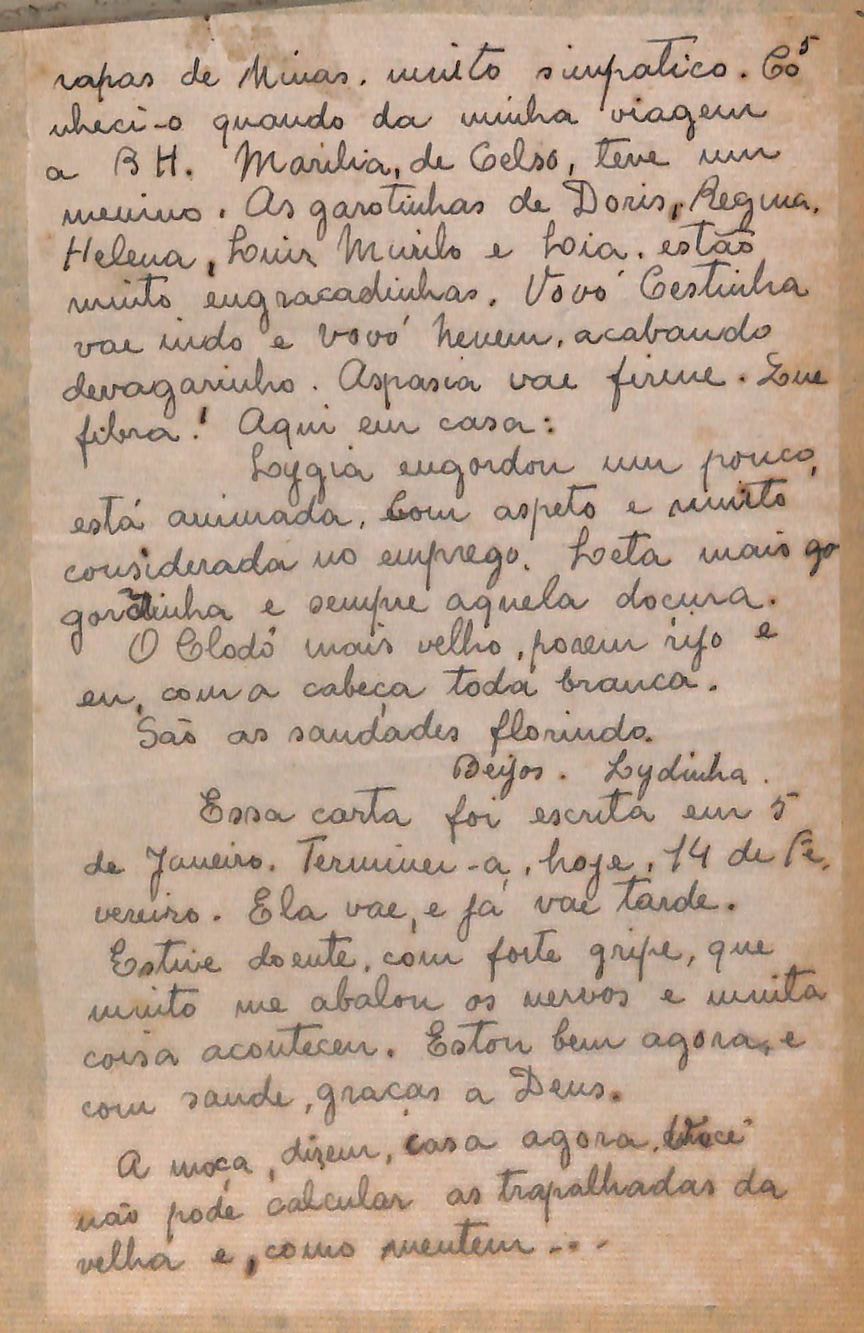 5
rapas de Minas. muito simpatico. Co
nheci-o quando da minha viagem
a B H. Marilia, de Celso, teve um
menino. As garotinhas de Doris, Regina,
Helena, Luiz Murilo e Lia. estão
muito engraçadinhas. Vovó Cestinha
vae indo e vovó Neném, acabando
devagarinho. Aspasia vae firme. Que
fibra! Aqui em casa:
Lygia engordou um pouco,
está animada, bom aspeto e muito
considerada no emprego. Leta mais go
gordinha e sempre aquela doçura.
O Clodó mais velho, porem rijo e
eu, com a cabeça toda branca.
São as saudades florindo.
Beijos. Lydinha.
Essa carta foi escrita em 5
de Janeiro. Terminei-a, hoje, 14 de Fe,
vereiro. Ela vae, e já vae tarde.
Estive doente, com forte gripe, que
muito me abalou os nervos e muita
coisa aconteceu. Estou bem agora, e
com saude, graças a Deus.
A moça, dizem, casa agora. Você
não pode calcular as trapalhadas da
velha e, como mentem...